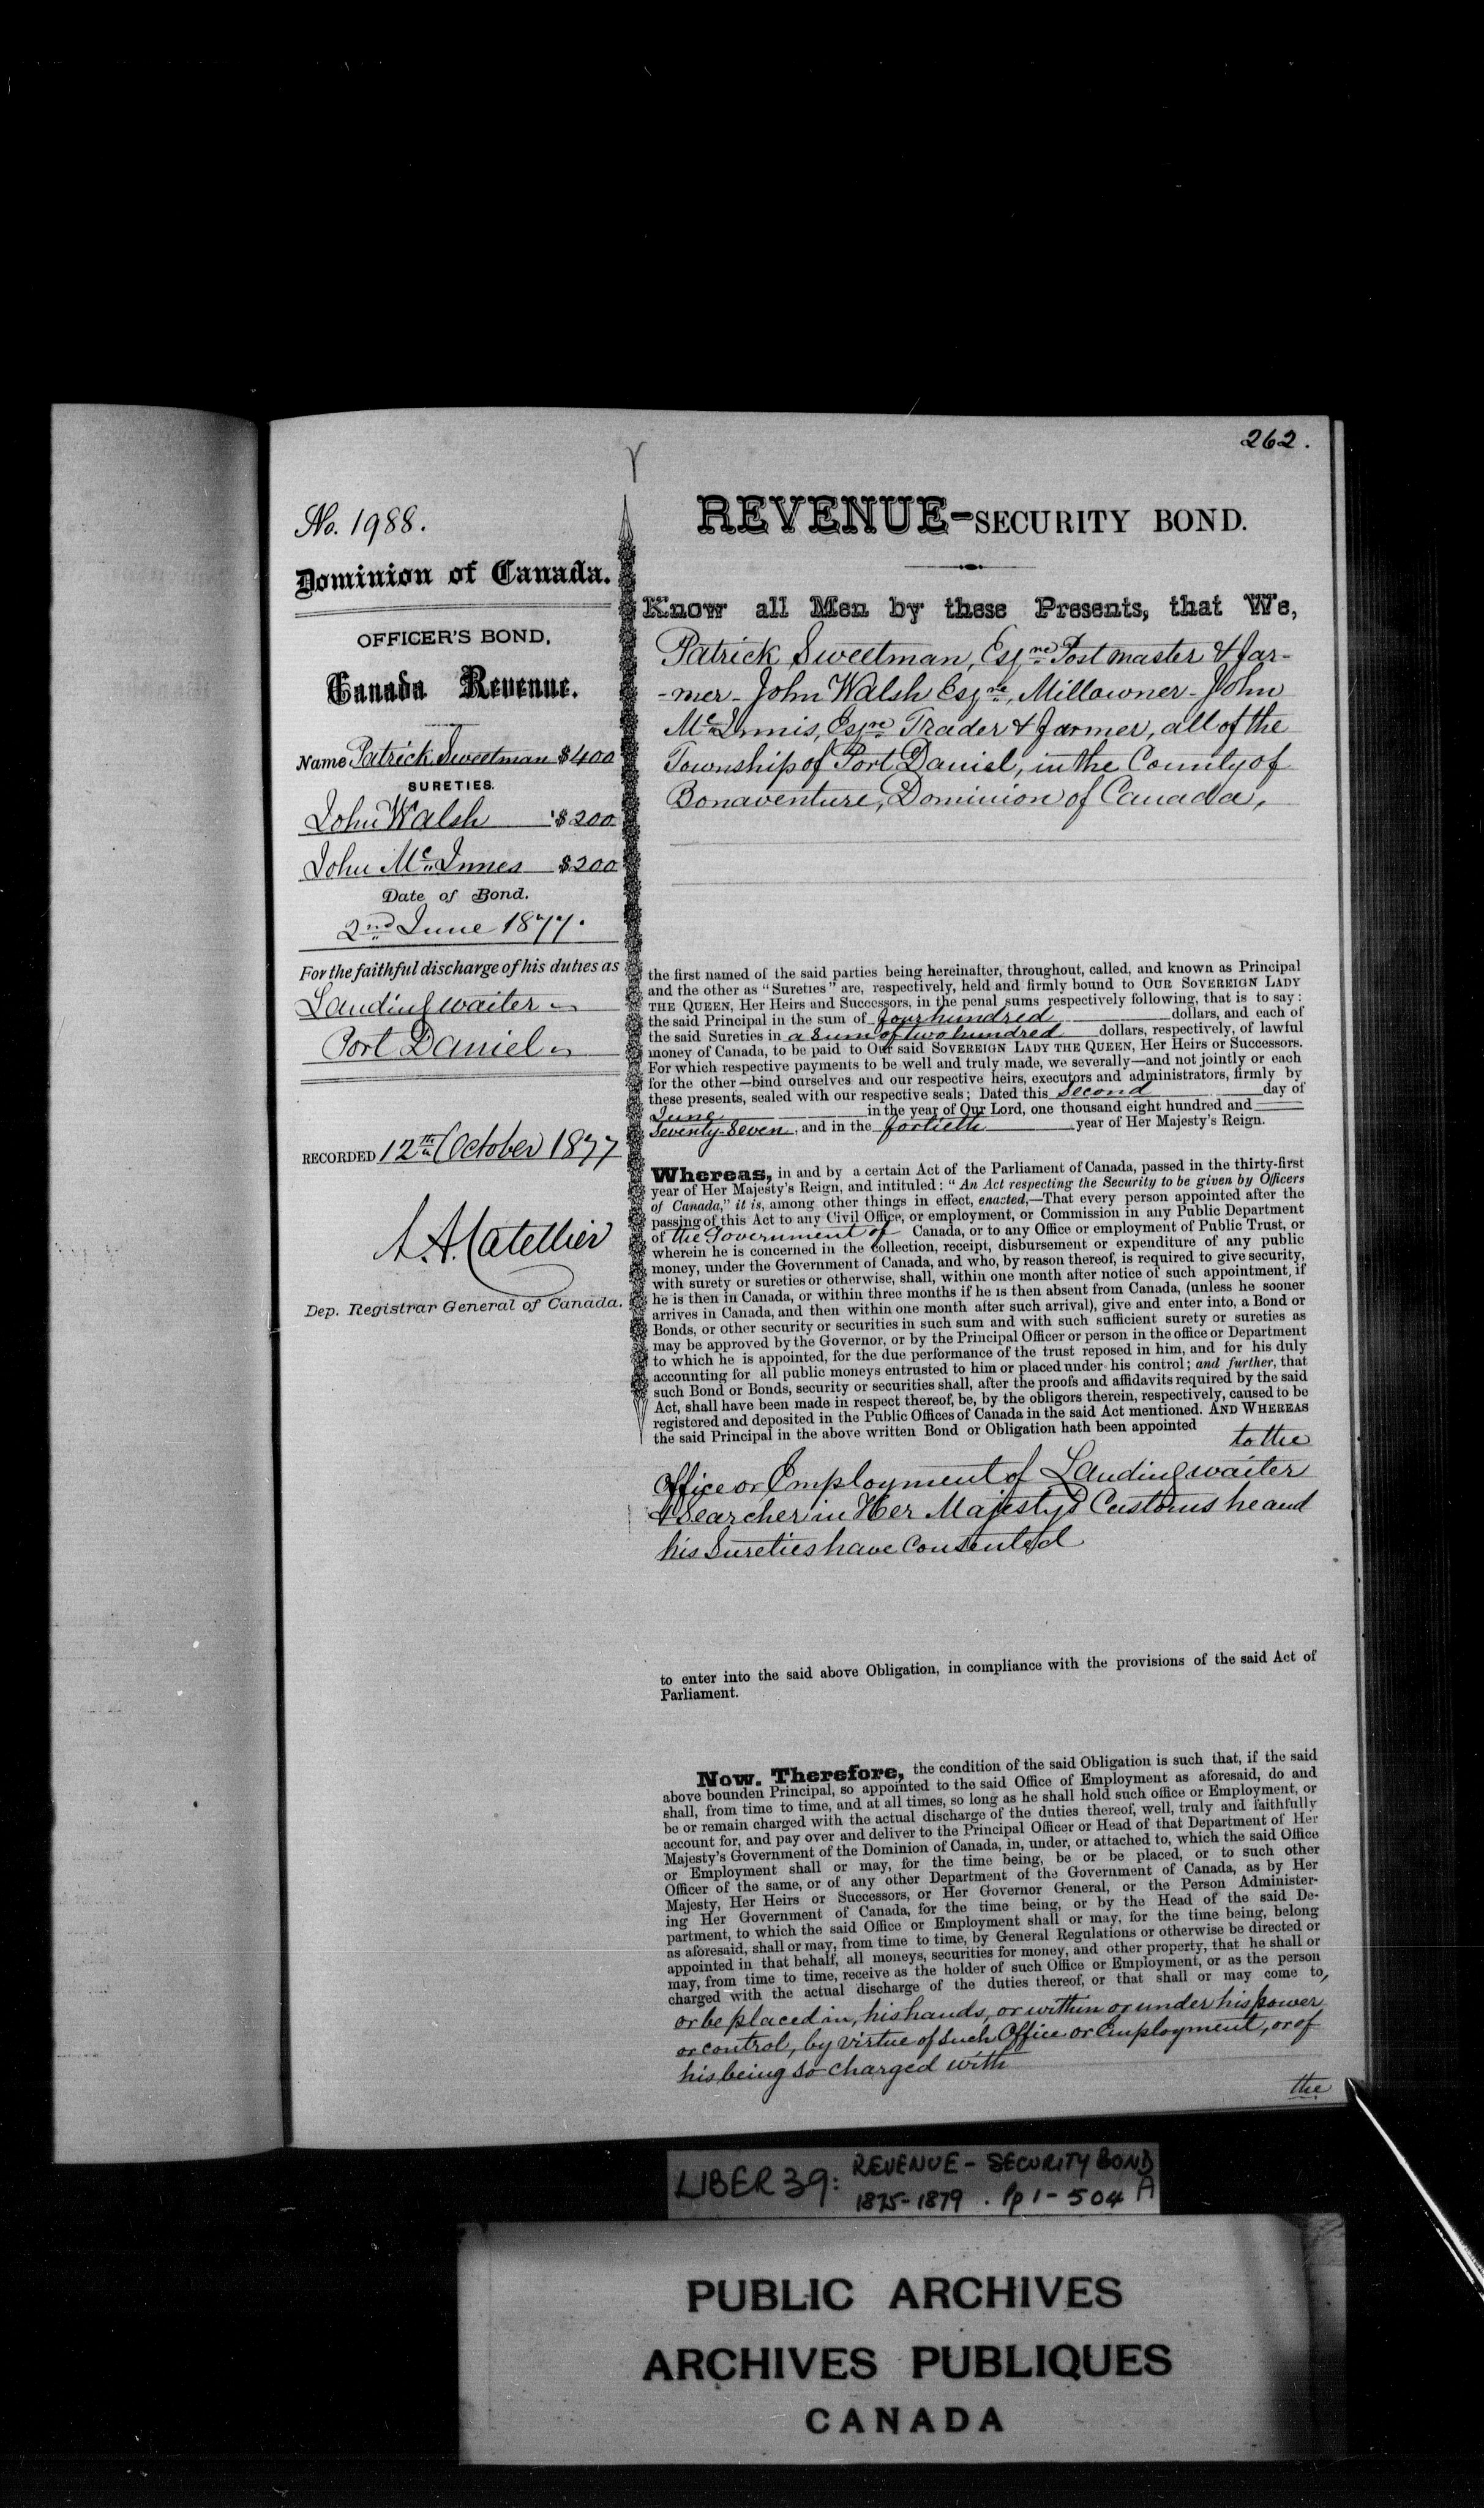 262.
No. 1988.
Dominion of Canada.
OFFICER'S BOND,
Canada Revenue.
Name Patrick Sweetman $400
SURETIES.
John Walsh $200
John Mc. Innes $200
Date of Bond.
2nd June 1877.
For the faithful discharge of his duties as
Landing waiter
Port Daniel
RECORDED 12th October 1877
A. A. Catellier
Dep. Registrar General of Canada.
REVENUE-SECURITY BOND.
Know all Men by these Presents, that We,
Patrick Sweetman, Esqre Postmaster & far-
-mer - John Walsh Esqre, Millowner - John
Mc Innis, Esqre Trader & farmer, all of the
Township of Port Daniel, in the County of
Bonaventure, Dominion of Canada,
the first named of the said parties being hereinafter, throughout, called, and known as Principal
and the other as "Sureties" are, respectively, held and firmly bound to OUR SOVEREIGN LADY
THE QUEEN, Her Heirs and Successors, in the penal sums respectively following, that is to say:
the said Principal in the sum of four hundred dollars, and each of
the said Sureties in a Sum of two hundred dollars, respectively, of lawful
money of Canada, to be paid to Our said SOVEREIGN LADY THE QUEEN, Her Heirs or Successors.
For which respective payments to be well and truly made, we severally—and not jointly or each
for the other—bind ourselves and our respective heirs, executors and administrators, firmly by
these presents, sealed with our respective seals; Dated this Second day of
June in the year of Our Lord, one thousand eight hundred and
Seventy-Seven, and in the fortieth year of Her Majesty's Reign.
Whereas, in and by a certain Act of the Parliament of Canada, passed in the thirty-first
year of Her Majesty's Reign, and intituled: "An Act respecting the Security to be given by Officers
of Canada," it is, among other things in effect, enacted,—That every person appointed after the
passing of this Act to any Civil Office, or employment, or Commission in any Public Department
of the Government of Canada, or to any Office or employment of Public Trust, or
wherein he is concerned in the collection, receipt, disbursement or expenditure of any public
money, under the Government of Canada, and who, by reason thereof, is required to give security,
with surety or sureties or otherwise, shall, within one month after notice of such appointment, if
he is then in Canada, or within three months if he is then absent from Canada, (unless he sooner
arrives in Canada, and then within one month after such arrival), give and enter into, a Bond or
Bonds, or other security or securities in such sum and with such sufficient surety or sureties as
may be approved by the Governor, or by the Principal Officer or person in the office or Department
to which he is appointed, for the due performance of the trust reposed in him, and for his duly
accounting for all public moneys entrusted to him or placed under his control; and further, that
such Bond or Bonds, security or securities shall, after the proofs and affidavits required by the said
Act, shall have been made in respect thereof, be, by the obligors therein, respectively, caused to be
registered and deposited in the Public Offices of Canada in the said Act mentioned. AND WHEREAS
the said Principal in the above written Bond or Obligation hath been appointed to the
Office or Employment of Landing waiter
& Searcher in Her Majesty's Customs he and
his Sureties have Consented
to enter into the said above Obligation, in compliance with the provisions of the said Act of
Parliament.
Now. Therefore, the condition of the said Obligation is such that, if the said
above bounden Principal, so appointed to the said Office of Employment as aforesaid, do and
shall, from time to time, and at all times, so long as he shall hold such office or Employment, or
be or remain charged with the actual discharge of the duties thereof, well, truly and faithfully
account for, and pay over and deliver to the Principal Officer or Head of that Department of Her
Majesty's Government of the Dominion of Canada, in, under, or attached to, which the said Office
or Employment shall or may, for the time being, be or be placed, or to such other
Officer of the same, or of any other Department of the Government of Canada, as by Her
Majesty, Her Heirs or Successors, or Her Governor General, or the Person Administer-
ing Her Government of Canada, for the time being, or by the Head of the said De-
partment, to which the said Office or Employment shall or may, for the time being, belong
as aforesaid, shall or may, from time to time, by General Regulations or otherwise be directed or
appointed in that behalf, all moneys, securities for money, and other property, that he shall or
may, from time to time, receive as the holder of such Office or Employment, or as the person
charged with the actual discharge of the duties thereof, or that shall or may come to,
or be placed in, his hands, or within or under his power
or control, by virtue of such Office or Employment, or of
his being so charged with
the
LIBER 39: REVENUE - SECURITY BOND
1875-1879. Pp 1-504 A
PUBLIC ARCHIVES
ARCHIVES PUBLIQUES
CANADA